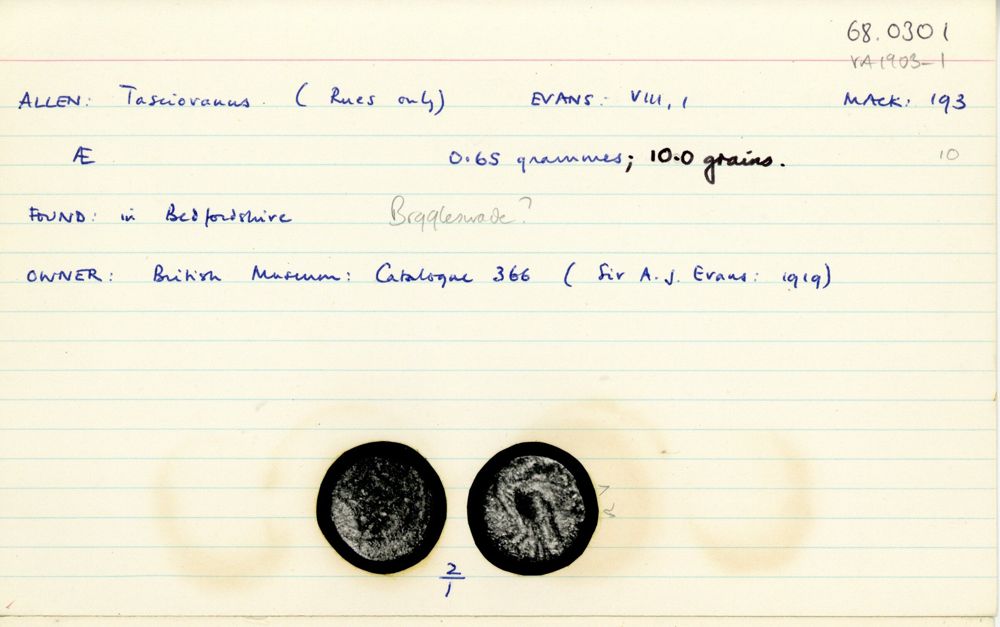 68.0301
VA1903-1
ALLEN: Tasciovanus. (Rues only) EVANS: VIII, 1 MACK: 193
Æ 0.65 grammes; 10.0 grains. 10
FOUND: in Bedfordshire Biggleswade?
OWNER: British Museum: Catalogue 366 (Sir A. J. Evans: 1919)
2
1